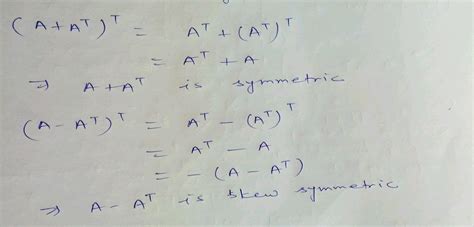 (A+Aᵀ)ᵀ = Aᵀ + (Aᵀ)ᵀ
= Aᵀ + A
⇒ A+Aᵀ is symmetric
(A-Aᵀ)ᵀ = Aᵀ - (Aᵀ)ᵀ
= Aᵀ - A
= - (A - Aᵀ)
⇒ A - Aᵀ is skew symmetric